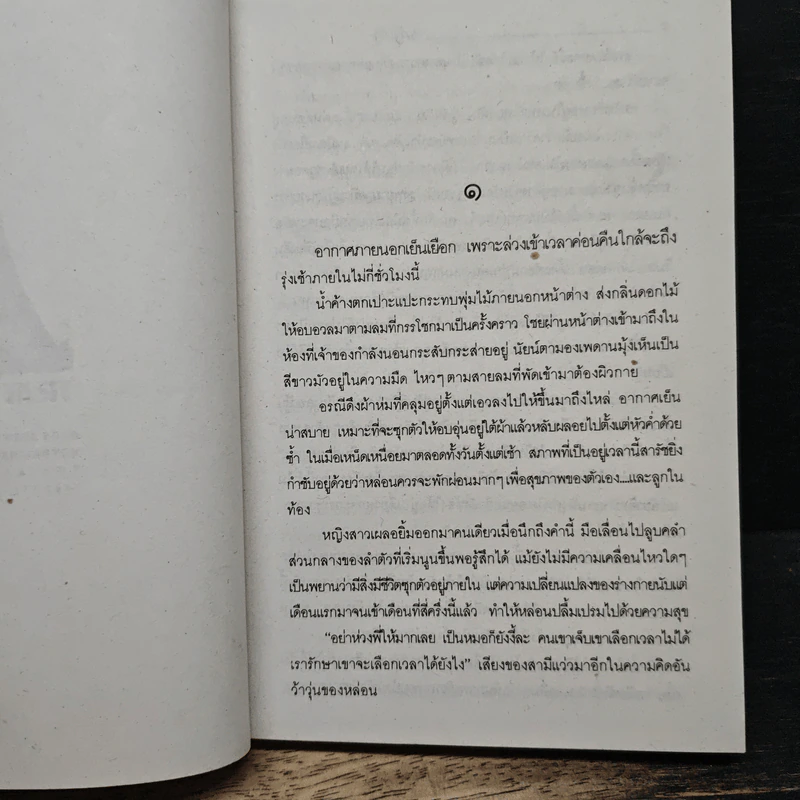 ๑
อากาศภายนอกเย็นเยือก เพราะล่วงเข้าเวลาค่อนคืนใกล้จะถึง
รุ่งเช้าภายในไม่กี่ชั่วโมงนี้
น้ำค้างตกเปาะแปะกระทบพุ่มไม้ภายนอกหน้าต่าง ส่งกลิ่นดอกไม้
ให้อบอวลมาตามลมที่กรรโชกมาเป็นครั้งคราว โชยผ่านหน้าต่างเข้ามาถึงใน
ห้องที่เจ้าของกำลังนอนกระสับกระส่ายอยู่ นัยน์ตามองเพดานมุ้งเห็นเป็น
สีขาวมัวอยู่ในความมืด ไหวๆ ตามสายลมที่พัดเข้ามาต้องผิวกาย
อรณีดึงผ้าห่มที่คลุมอยู่ตั้งแต่เอวลงไปให้ขึ้นมาถึงไหล่ อากาศเย็น
น่าสบาย เหมาะที่จะซุกตัวให้อบอุ่นอยู่ใต้ผ้าแล้วหลับผลอยไปตั้งแต่หัวค่ำด้วย
ซ้ำ ในเมื่อเหน็ดเหนื่อยมาตลอดทั้งวันตั้งแต่เช้า สภาพที่เป็นอยู่เวลานี้สารัชยิ่ง
กำชับอยู่ด้วยว่าหล่อนควรจะพักผ่อนมากๆ เพื่อสุขภาพของตัวเอง...และลูกใน
ท้อง
หญิงสาวเผลอยิ้มออกมาคนเดียวเมื่อนึกถึงคำนี้ มือเลื่อนไปลูบคลำ
ส่วนกลางของลำตัวที่เริ่มนูนขึ้นพอรู้สึกได้ แม้ยังไม่มีความเคลื่อนไหวใดๆ
เป็นพยานว่ามีสิ่งมีชีวิตซุกตัวอยู่ภายใน แต่ความเปลี่ยนแปลงของร่างกายนับแต่
เดือนแรกมาจนเข้าเดือนที่สี่ครึ่งนี้แล้ว ทำให้หล่อนปลื้มเปรมไปด้วยความสุข
“อย่าห่วงพี่ให้มากเลย เป็นหมอก็ยังงี้ละ คนเขาเจ็บเขาเลือกเวลาไม่ได้
เรารักษาเขาจะเลือกเวลาได้ยังไง” เสียงของสามีแว่วมาอีกในความคิดอัน
ว้าวุ่นของหล่อน